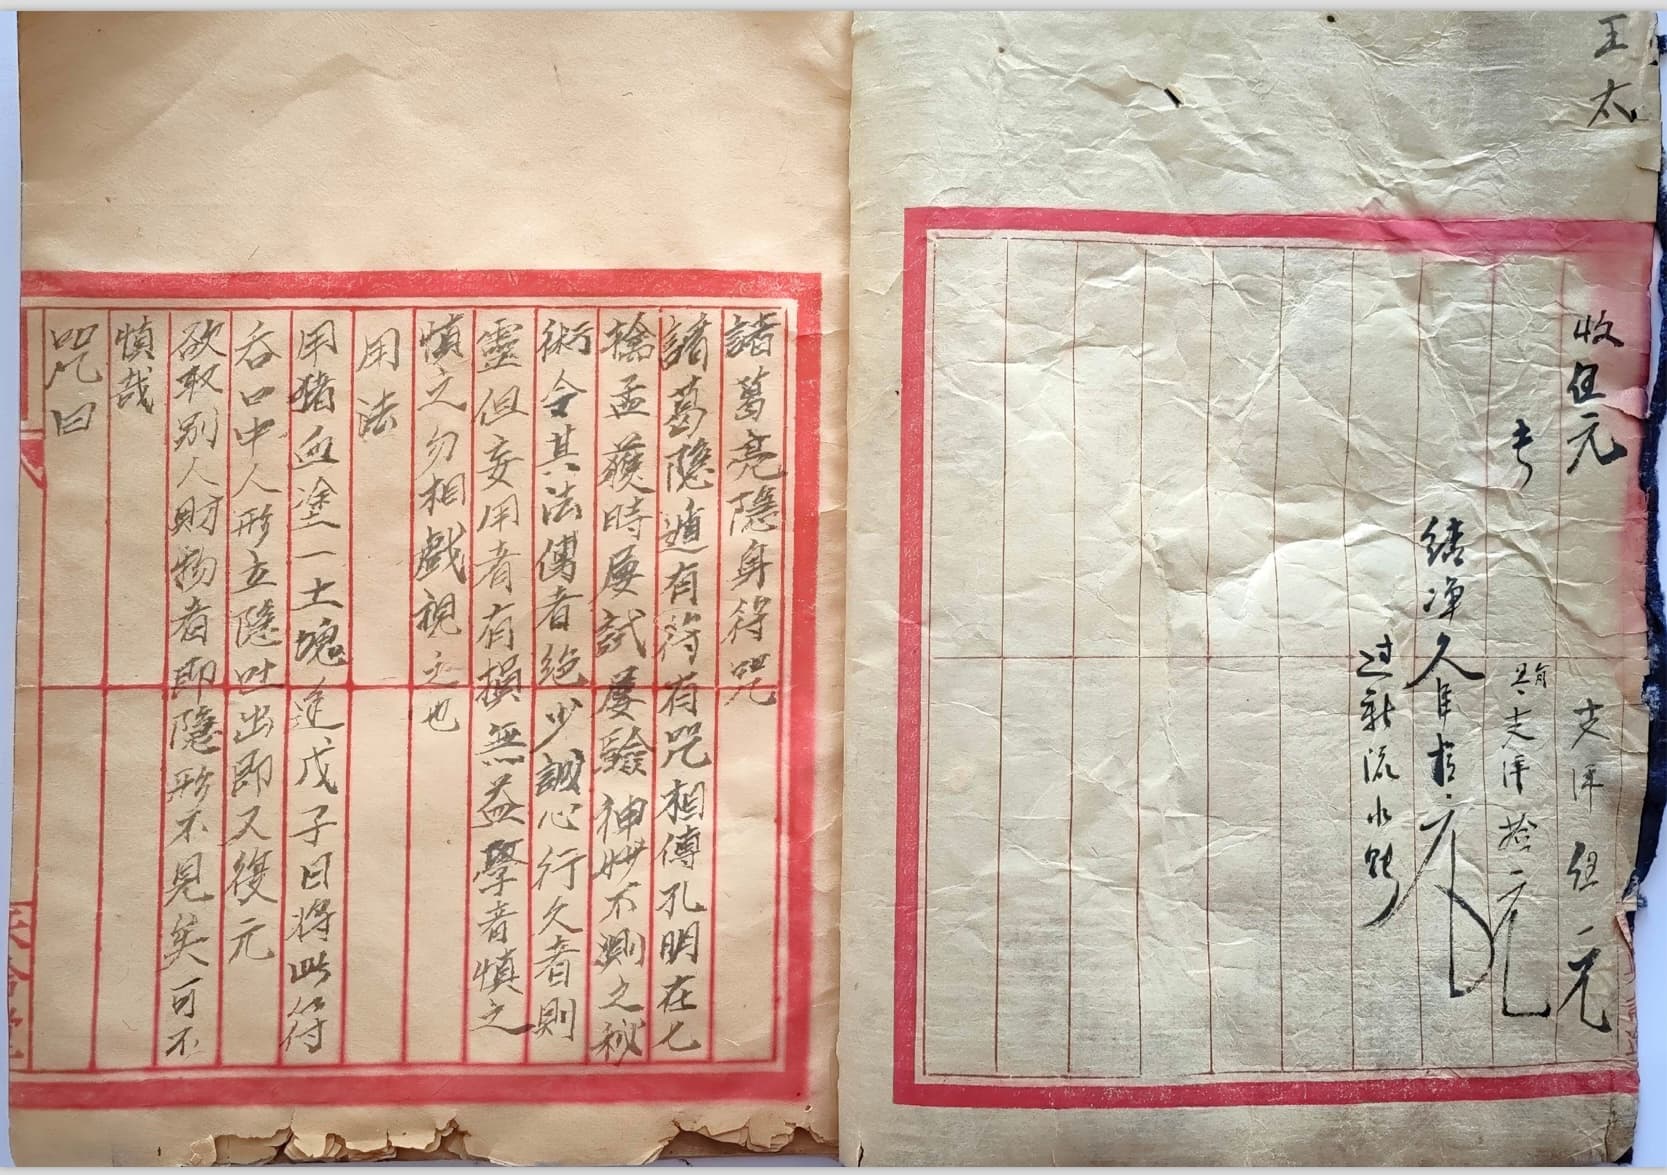 王太
收伍元
支洋伍元
支洋拾元
結净欠
過新流水賬
諸葛亮隱身符咒
諸葛隱遁有符有咒相傳孔明在七
擒孟獲時屡試屡驗神妙不測之秘
術令其法傳者絶少誠心行久者則
靈但妄用者有損無益學者慎之
慎之勿相戲視之也
用法
用猪血塗一土塊逢戊子日將此符
吞口中人形立隱吐出即又復元
欲取别人財物者即隱形不見矣可不
慎哉
咒曰